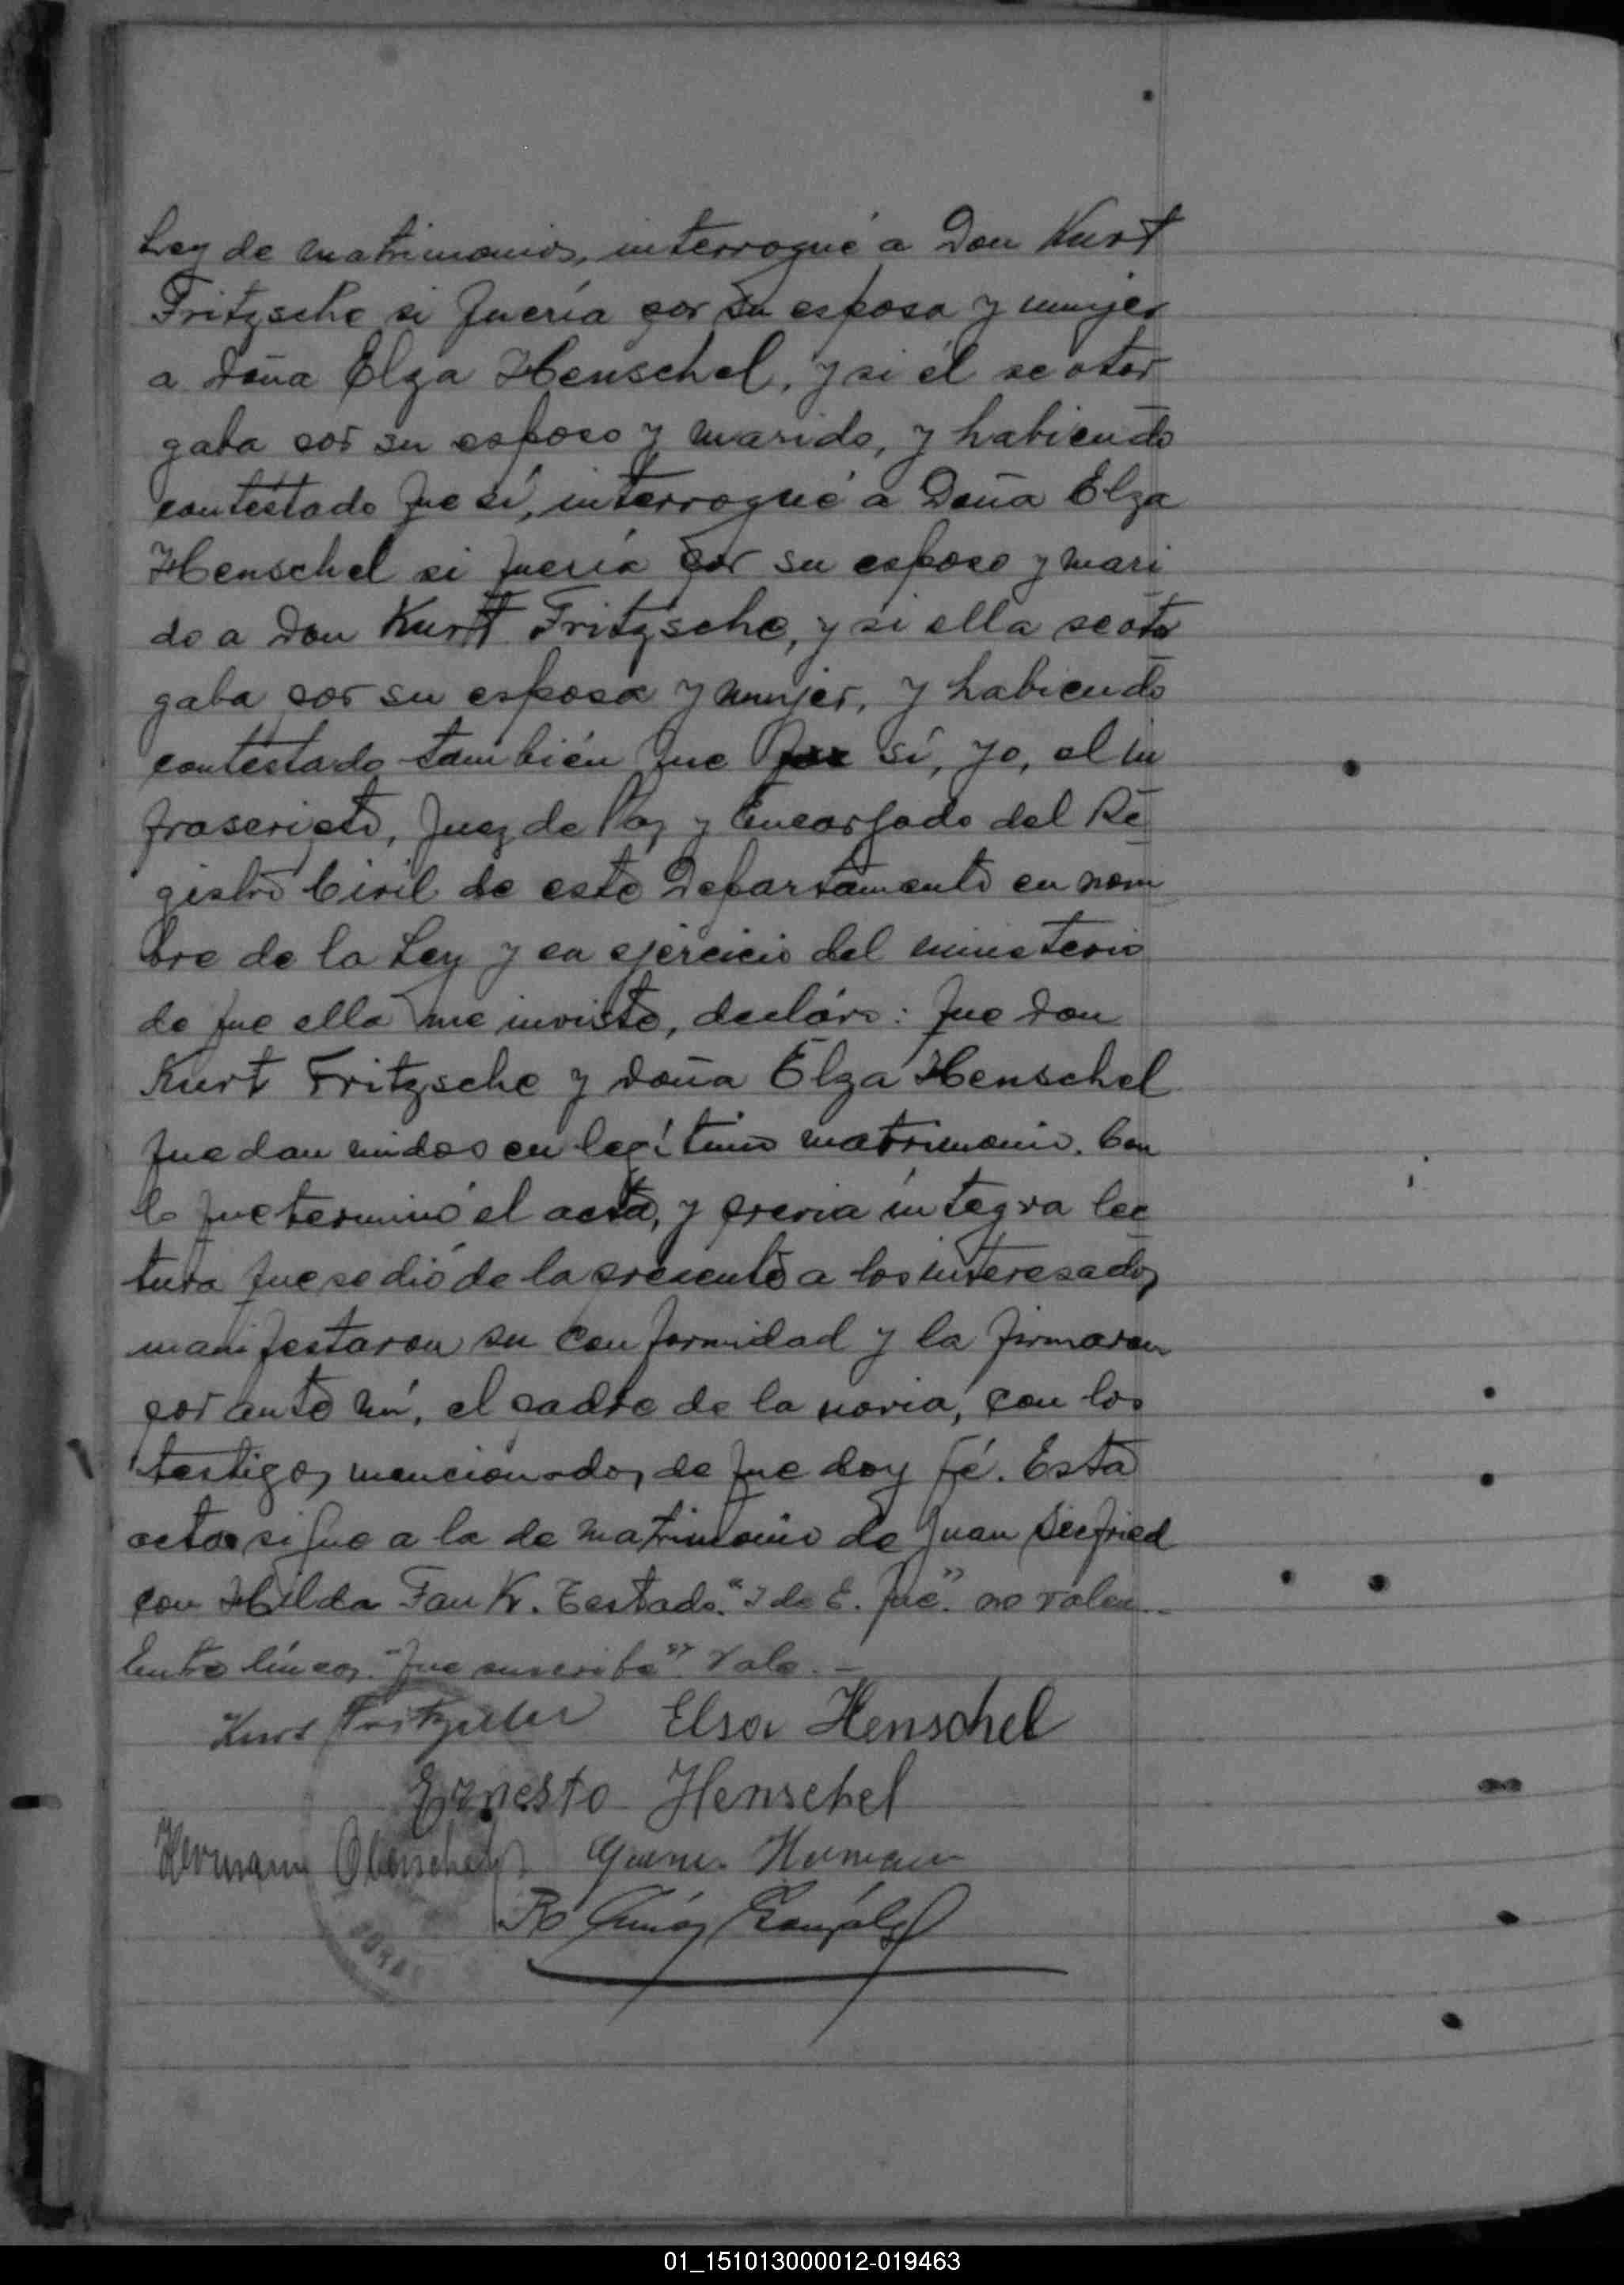 Ley de matrimonios, interrogué a Don Kurt
Fritzsche si quería por su esposa y mujer
a doña Elza Henschel, y si él se otor
gaba por su esposo y marido, y habiendo
contestado que sí, interrogué a Doña Elza
Henschel si quería por su esposo y mari
do a Don Kurt Fritzsche, y si ella se otor
gaba por su esposa y mujer, y habiendo
contestado también que sí, yo, el in
frascripto, Juez de Paz y Encargado del Re
gistro Civil de este Departamento en nom
bre de la Ley y en ejercicio del ministerio
de que ella me inviste, decláro: que Don
Kurt Fritzsche y doña Elza Henschel
quedan unidos en legítimo matrimonio. Con
lo que terminó el acta, y previa íntegra lec
tura que se dió de la presente a los interesados,
manifestaron su conformidad y la firmaron
por ante mí, el padre de la novia, con los
testigos mencionados, de que doy fé. Esta
acta sigue a la de matrimonio de Juan Siegfried
con Hilda Fank. Testado. "que". no valen.-
Entre líneas. "que suscribe". Vale.-
Kurt Fritzsche Elsa Henschel
Ernesto Henschel
Hermann
González
01_151013000012-019463